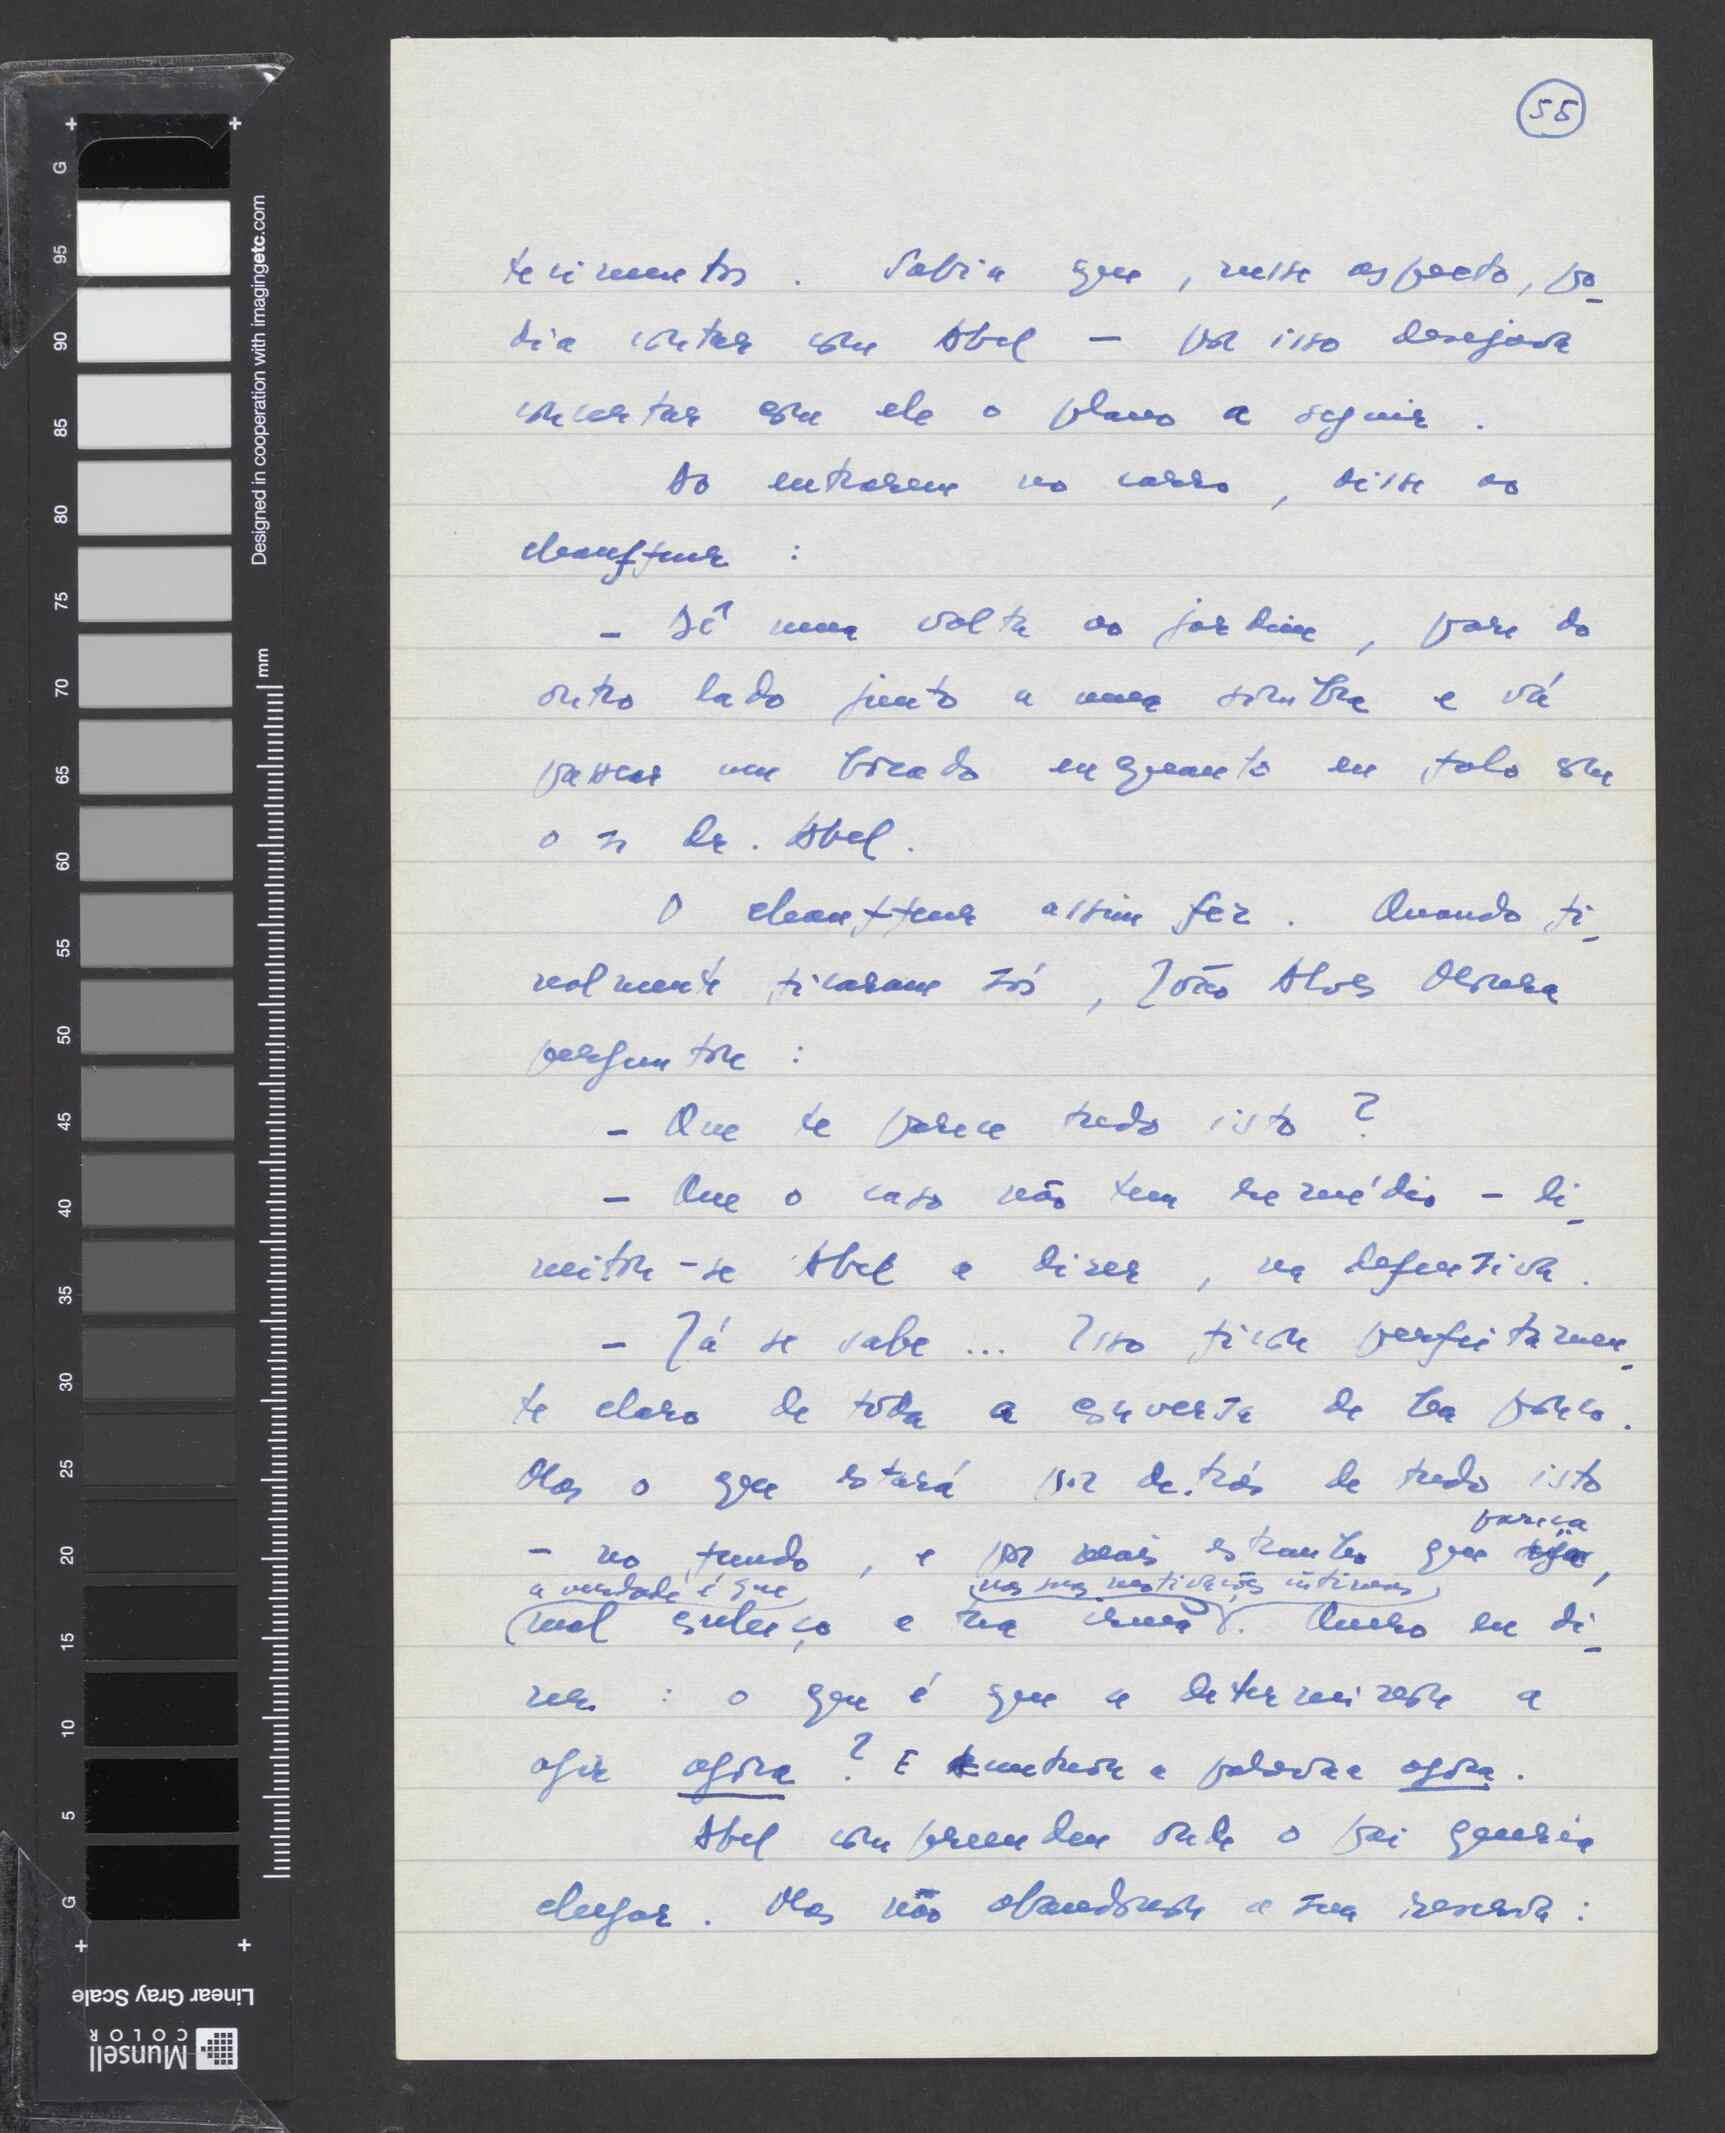 55
tecimentos. Sabia que, nesse aspecto, po-
dia contar com Abel — por isso desejava
concertar com ele o plano a seguir.
Ao entrarem no carro, disse ao
chauffeur:
- Dê uma volta ao jardim, pare do
outro lado junto a uma sombra e vá
passear um bocado enquanto eu falo com
o sr dr. Abel.
O chauffeur assim fez. Quando fi-
nalmente ficaram sós, João Alves
perguntou:
- Que te parece tudo isto?
- Que o caso não tem remédio - li-
mitou-se Abel a dizer, na defensiva.
- Já se sabe... Isso ficou perfeitamen-
te claro de toda a conversa de há pouco.
Mas o que estará por detrás de tudo isto
pareça
- no fundo, e por mais estranho que seja,
a verdade é que nas suas motivações íntimas
mal conheço a tua irmã. Quero eu di-
zer: o que é que a determinou a
agir agora? E acentuou a palavra agora.
Abel compreendeu onde o pai queria
chegar. Mas não abandonou a sua reserva:
G
95
90
85
80
75
70
65
60
55
50
45
40
35
30
25
20
15
10
5
G
mm
Designed in cooperation with imagingetc.com
Linear Gray Scale
Munsell
COLOR